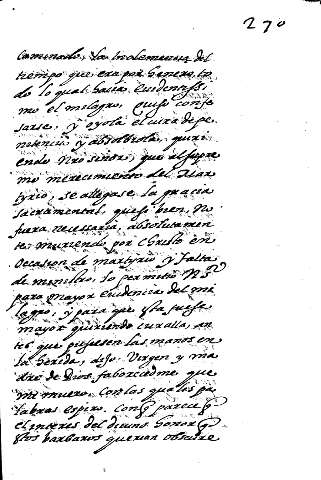 270
Caminado, la inclemencia del
tiempo que era por henero, to
do lo qual hacia evidentissi
mo el milagro, quiso confe
sarse, y oyola el cura de pe
nitencia y absolbiola, quiri
endo Nro señor, que al supre
mo merecimiento del Mar
tyrio, se allegase la gracia
sacramental, que si bien no
fuera necesaria absolutamen
te, muriendo por Christo en
ocasion de martyrio y falta
de ministro, lo permitio N. Sr.
para mayor evidencia del mi
lagro, y para que esta fuese
mayor quiriendo curalla, an
tes que pusiesen las manos en
la herida, dijo, Virgen y ma
dre de Dios faborecedme que
me muero. Con las quales pa
labras espiro. Conq parece q
el interes del divino honor q
los barbaros querian obscure